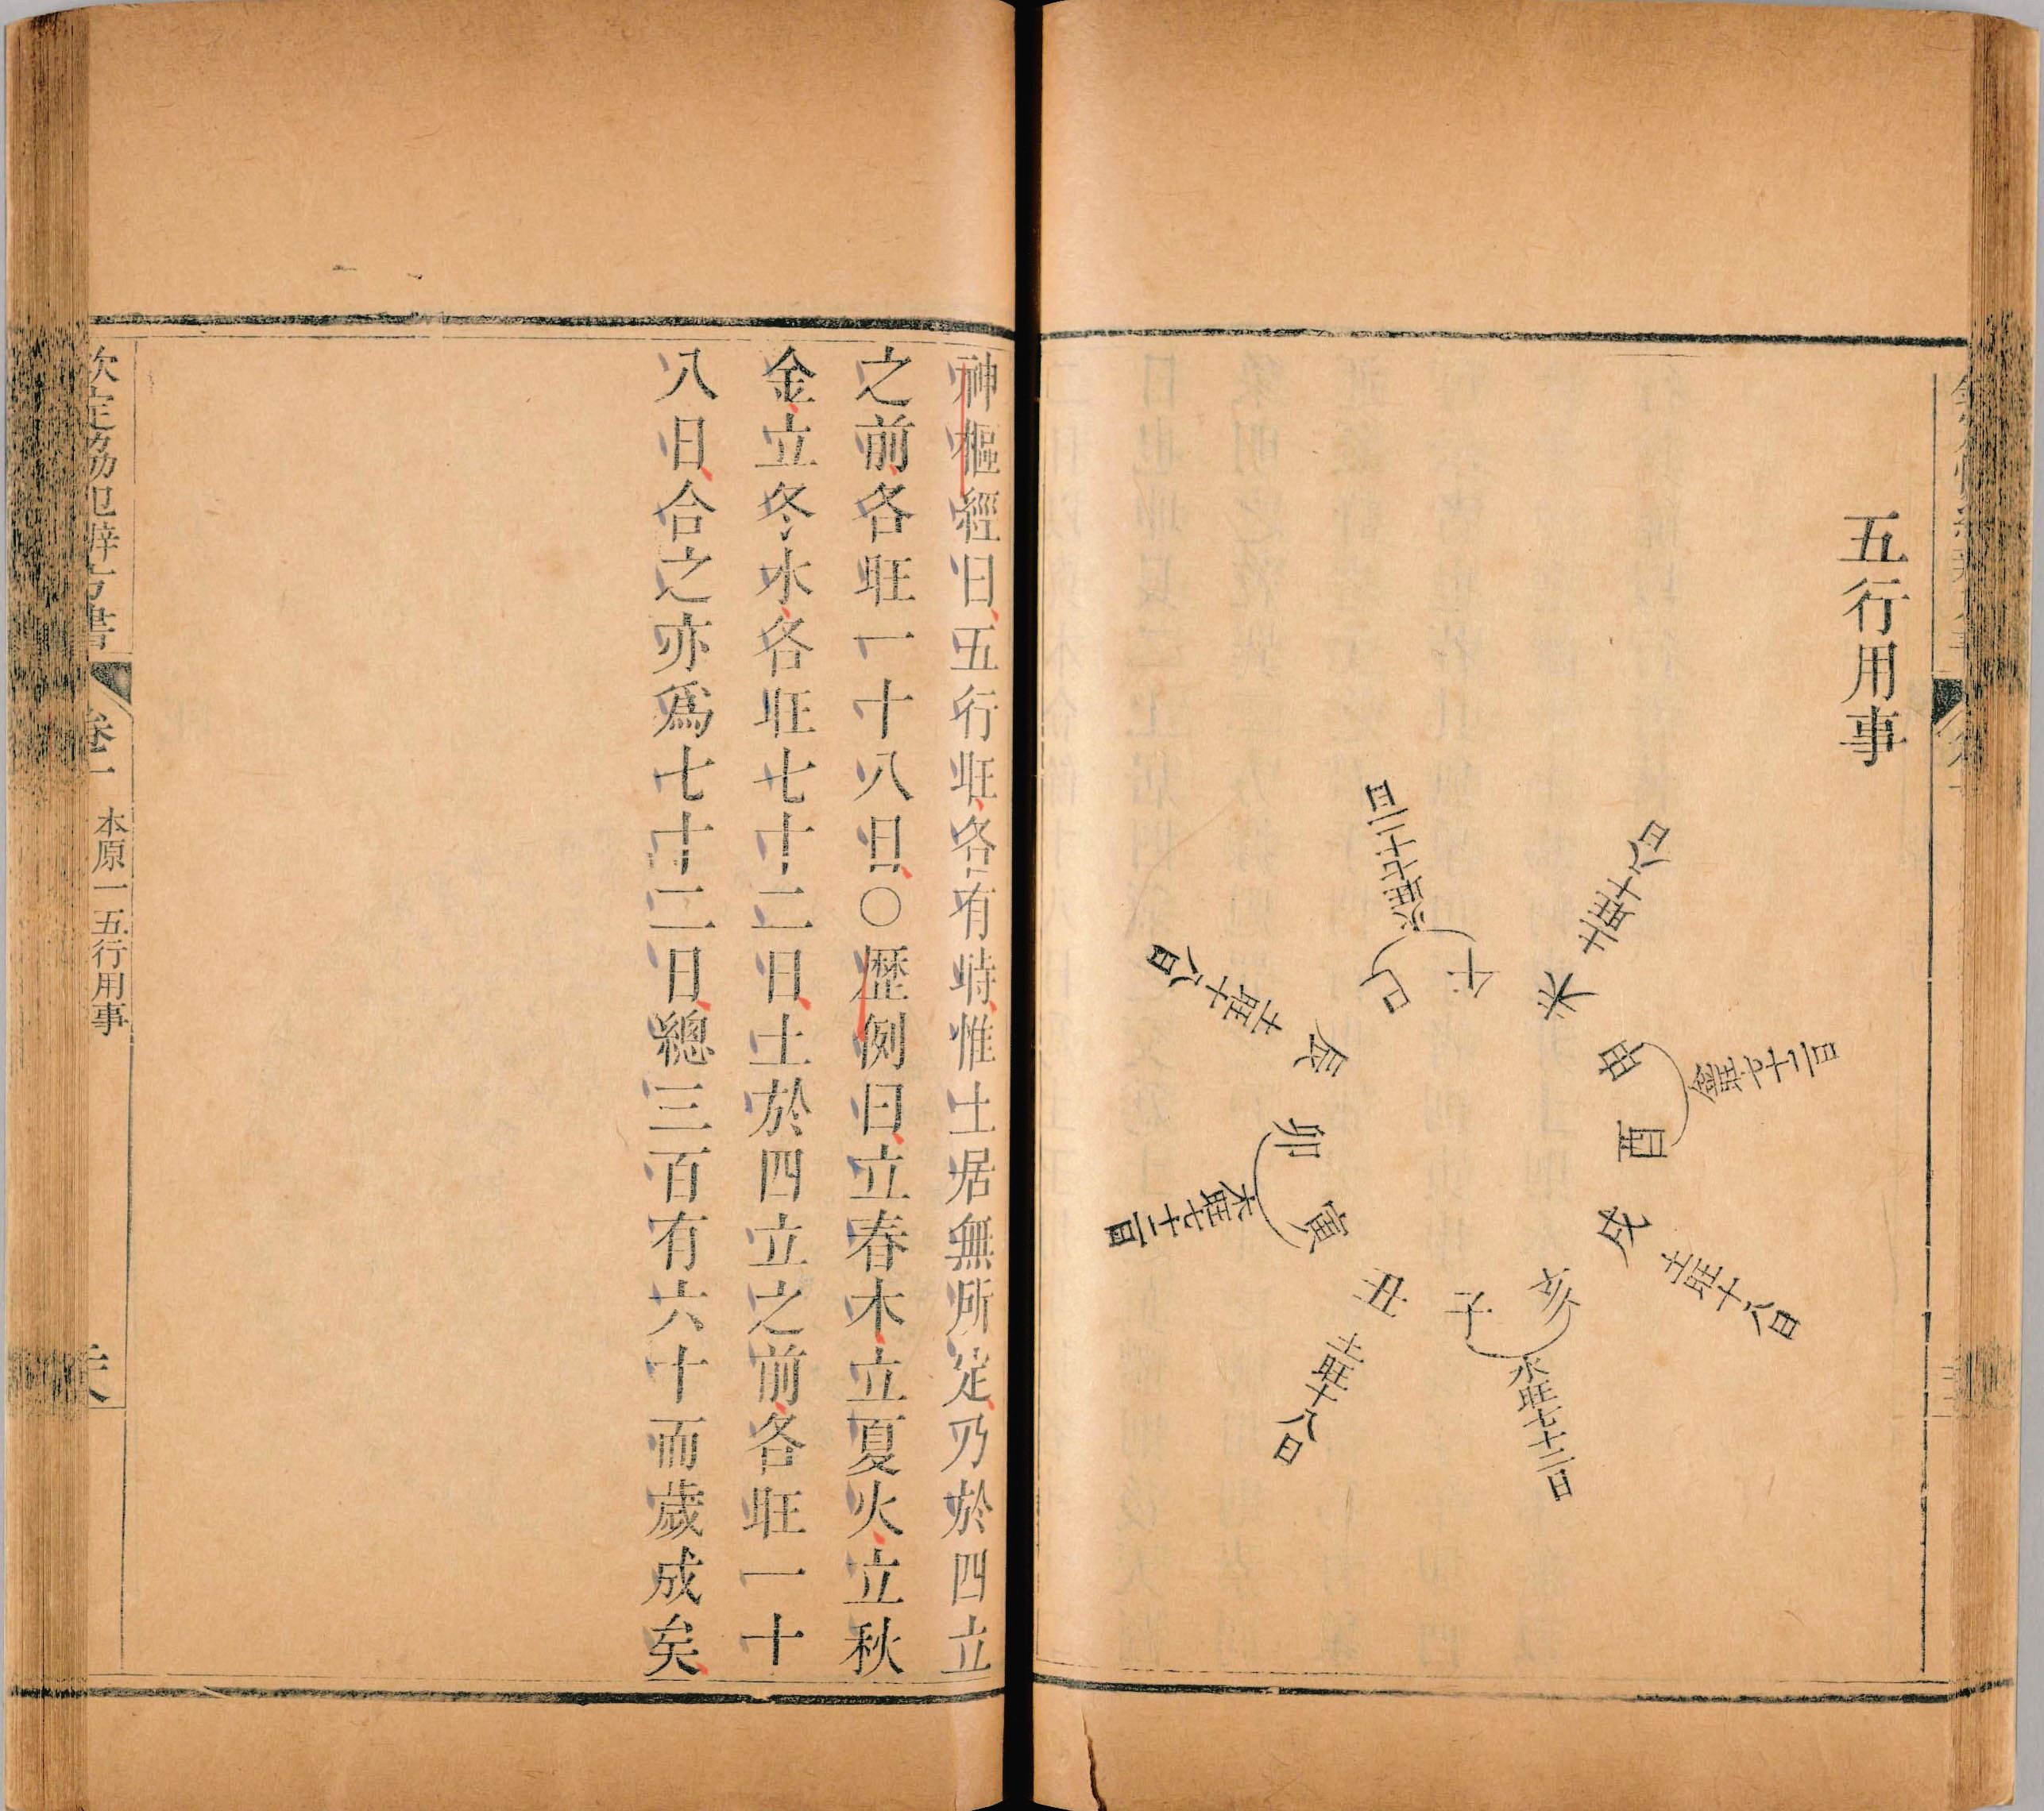 五行用事
巳午
火旺七十二日
未
土旺十八日
申酉
金旺七十二日
戌
土旺十八日
亥子
水旺七十二日
丑
土旺十八日
寅卯
木旺七十二日
辰
土旺十八日
神樞經曰五行旺各有時惟土居無所定乃於四立
之前各旺一十八日○歷例曰立春木立夏火立秋
金立冬水各旺七十二日土於四立之前各旺一十
八日合之亦爲七十二日總三百有六十而歲成矣
欽定協紀辨方書
卷一
本原一五行用事